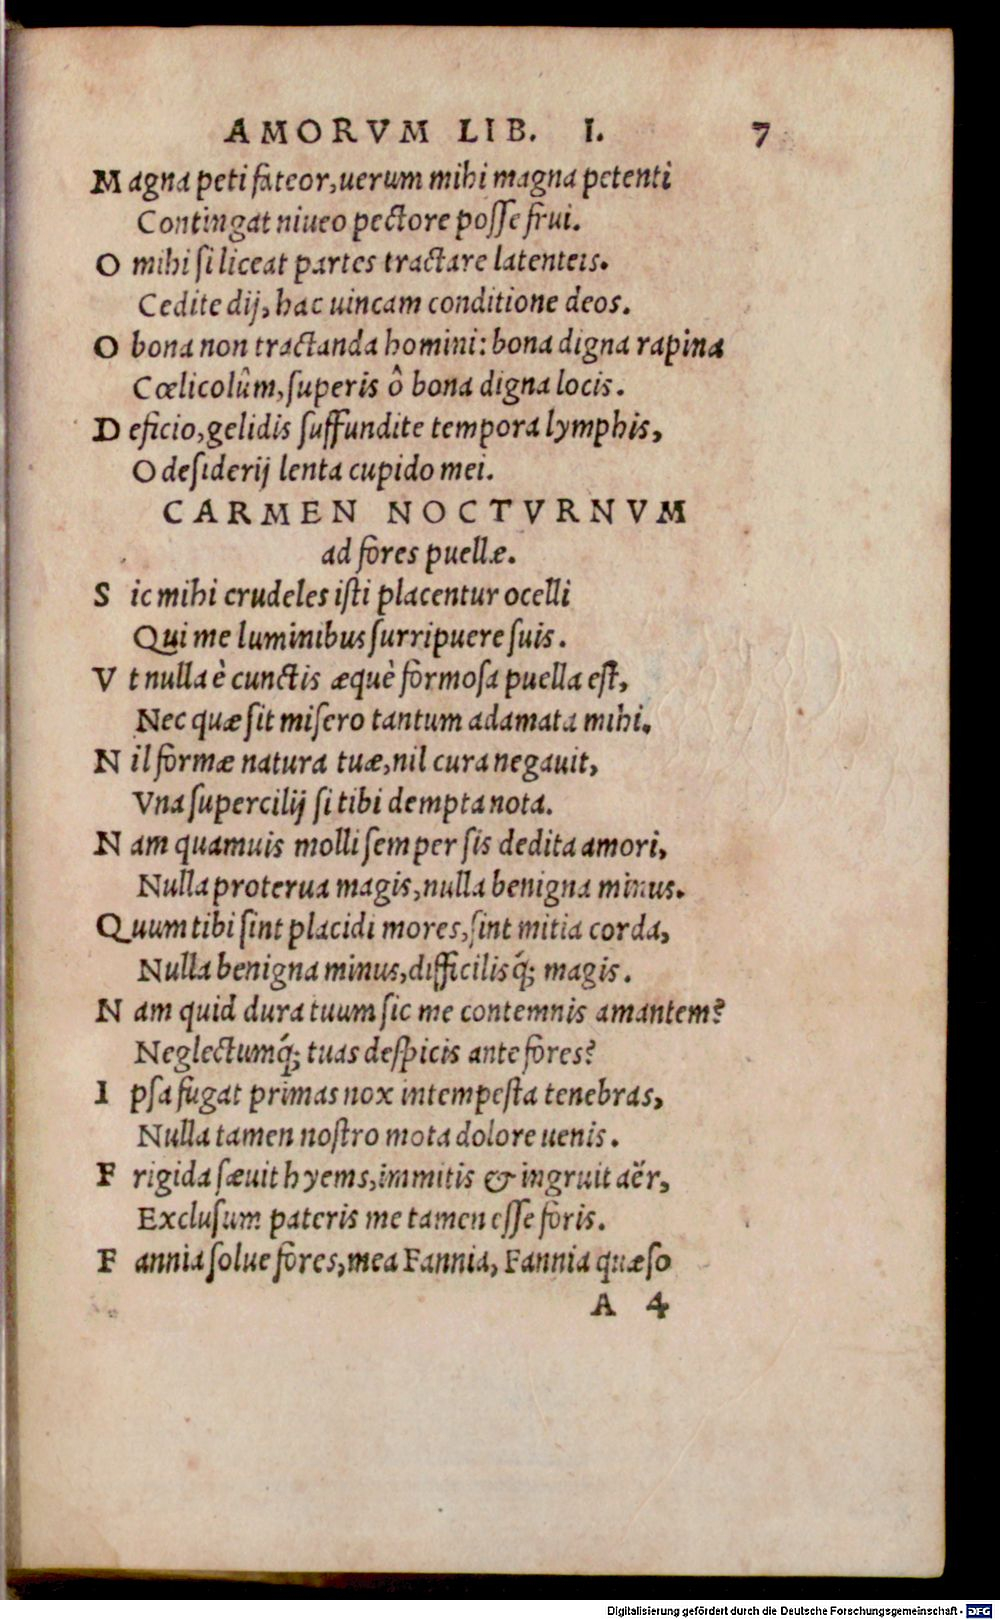 AMORVM LIB. I. 7
Magna peti fateor, uerum mihi magna petenti
Contingat niueo pectore posse frui.
O mihi si liceat partes tractare latenteis.
Cedite dij, hac uincam conditione deos.
O bona non tractanda homini: bona digna rapina
Cœlicolûm, superis ô bona digna locis.
Deficio, gelidis suffundite tempora lymphis,
O desiderij lenta cupido mei.
CARMEN NOCTVRNVM
ad fores puellæ.
Sic mihi crudeles isti placentur ocelli
Qui me luminibus surripuere suis.
Vt nulla è cunctis æquè formosa puella est,
Nec quæ sit misero tantum adamata mihi.
Nil formæ natura tuæ, nil cura negauit,
Vna supercilij si tibi dempta nota.
Nam quamuis molli semper sis dedita amori,
Nulla proterua magis, nulla benigna minus.
Quum tibi sint placidi mores, sint mitia corda,
Nulla benigna minus, difficilisq́; magis.
Nam quid dura tuum sic me contemnis amantem?
Neglectumq́; tuas despicis ante fores?
Ipsa fugat primas nox intempesta tenebras,
Nulla tamen nostro mota dolore uenis.
Frigida sæuit hyems, immitis & ingruit aër,
Exclusum pateris me tamen esse foris.
Fannia solue fores, mea Fannia, Fannia quæso
A 4
Digitalisierung gefördert durch die Deutsche Forschungsgemeinschaft - DFG